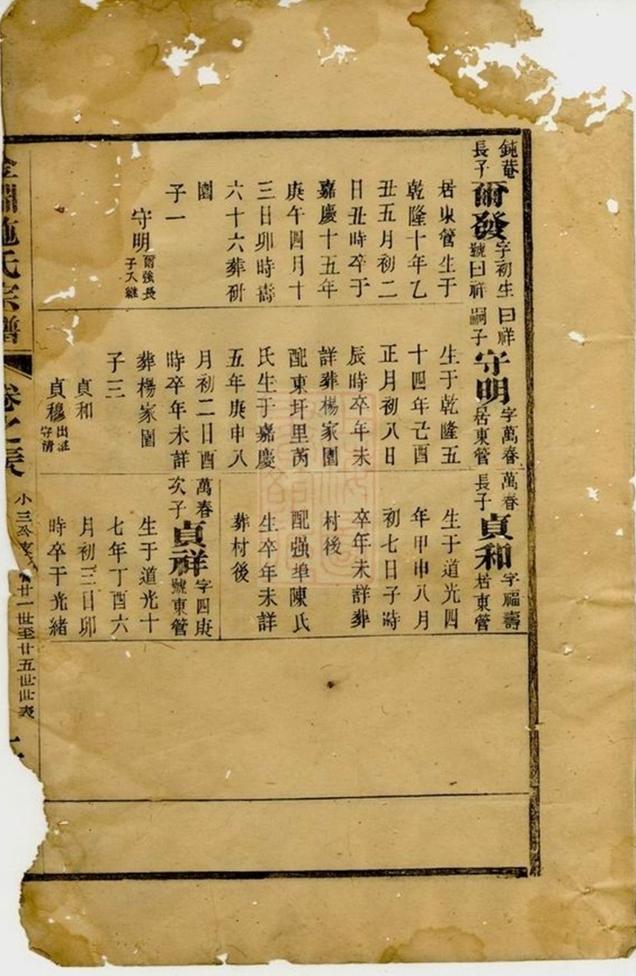 鈍菴
長子
爾發
字初生曰祥
號曰祥
居東管生于
乾隆十年乙
丑五月初二
日丑時卒于
嘉慶十五年
庚午四月十
三日卯時壽
六十六葬研
園
子一
守明
爾強長
子入繼
嗣子
守明
字萬春
居東管
生于乾隆五
十四年己酉
正月初八日
辰時卒年未
詳葬楊家園
配東圩里芮
氏生于嘉慶
五年庚申八
月初二日酉
時卒年未詳
葬楊家園
子三
貞和
貞穆
出
守清
萬春
長子
貞和
字福壽
居東管
生于道光四
年甲申八月
初七日子時
卒年未詳葬
村後
配強埠陳氏
生卒年未詳
葬村後
萬春
次子
貞祥
字四庚
號東管
生于道光十
七年丁酉六
月初三日卯
時卒于光緒
淵施氏宗譜
卷之表
小三分
廿一世至廿五世世表